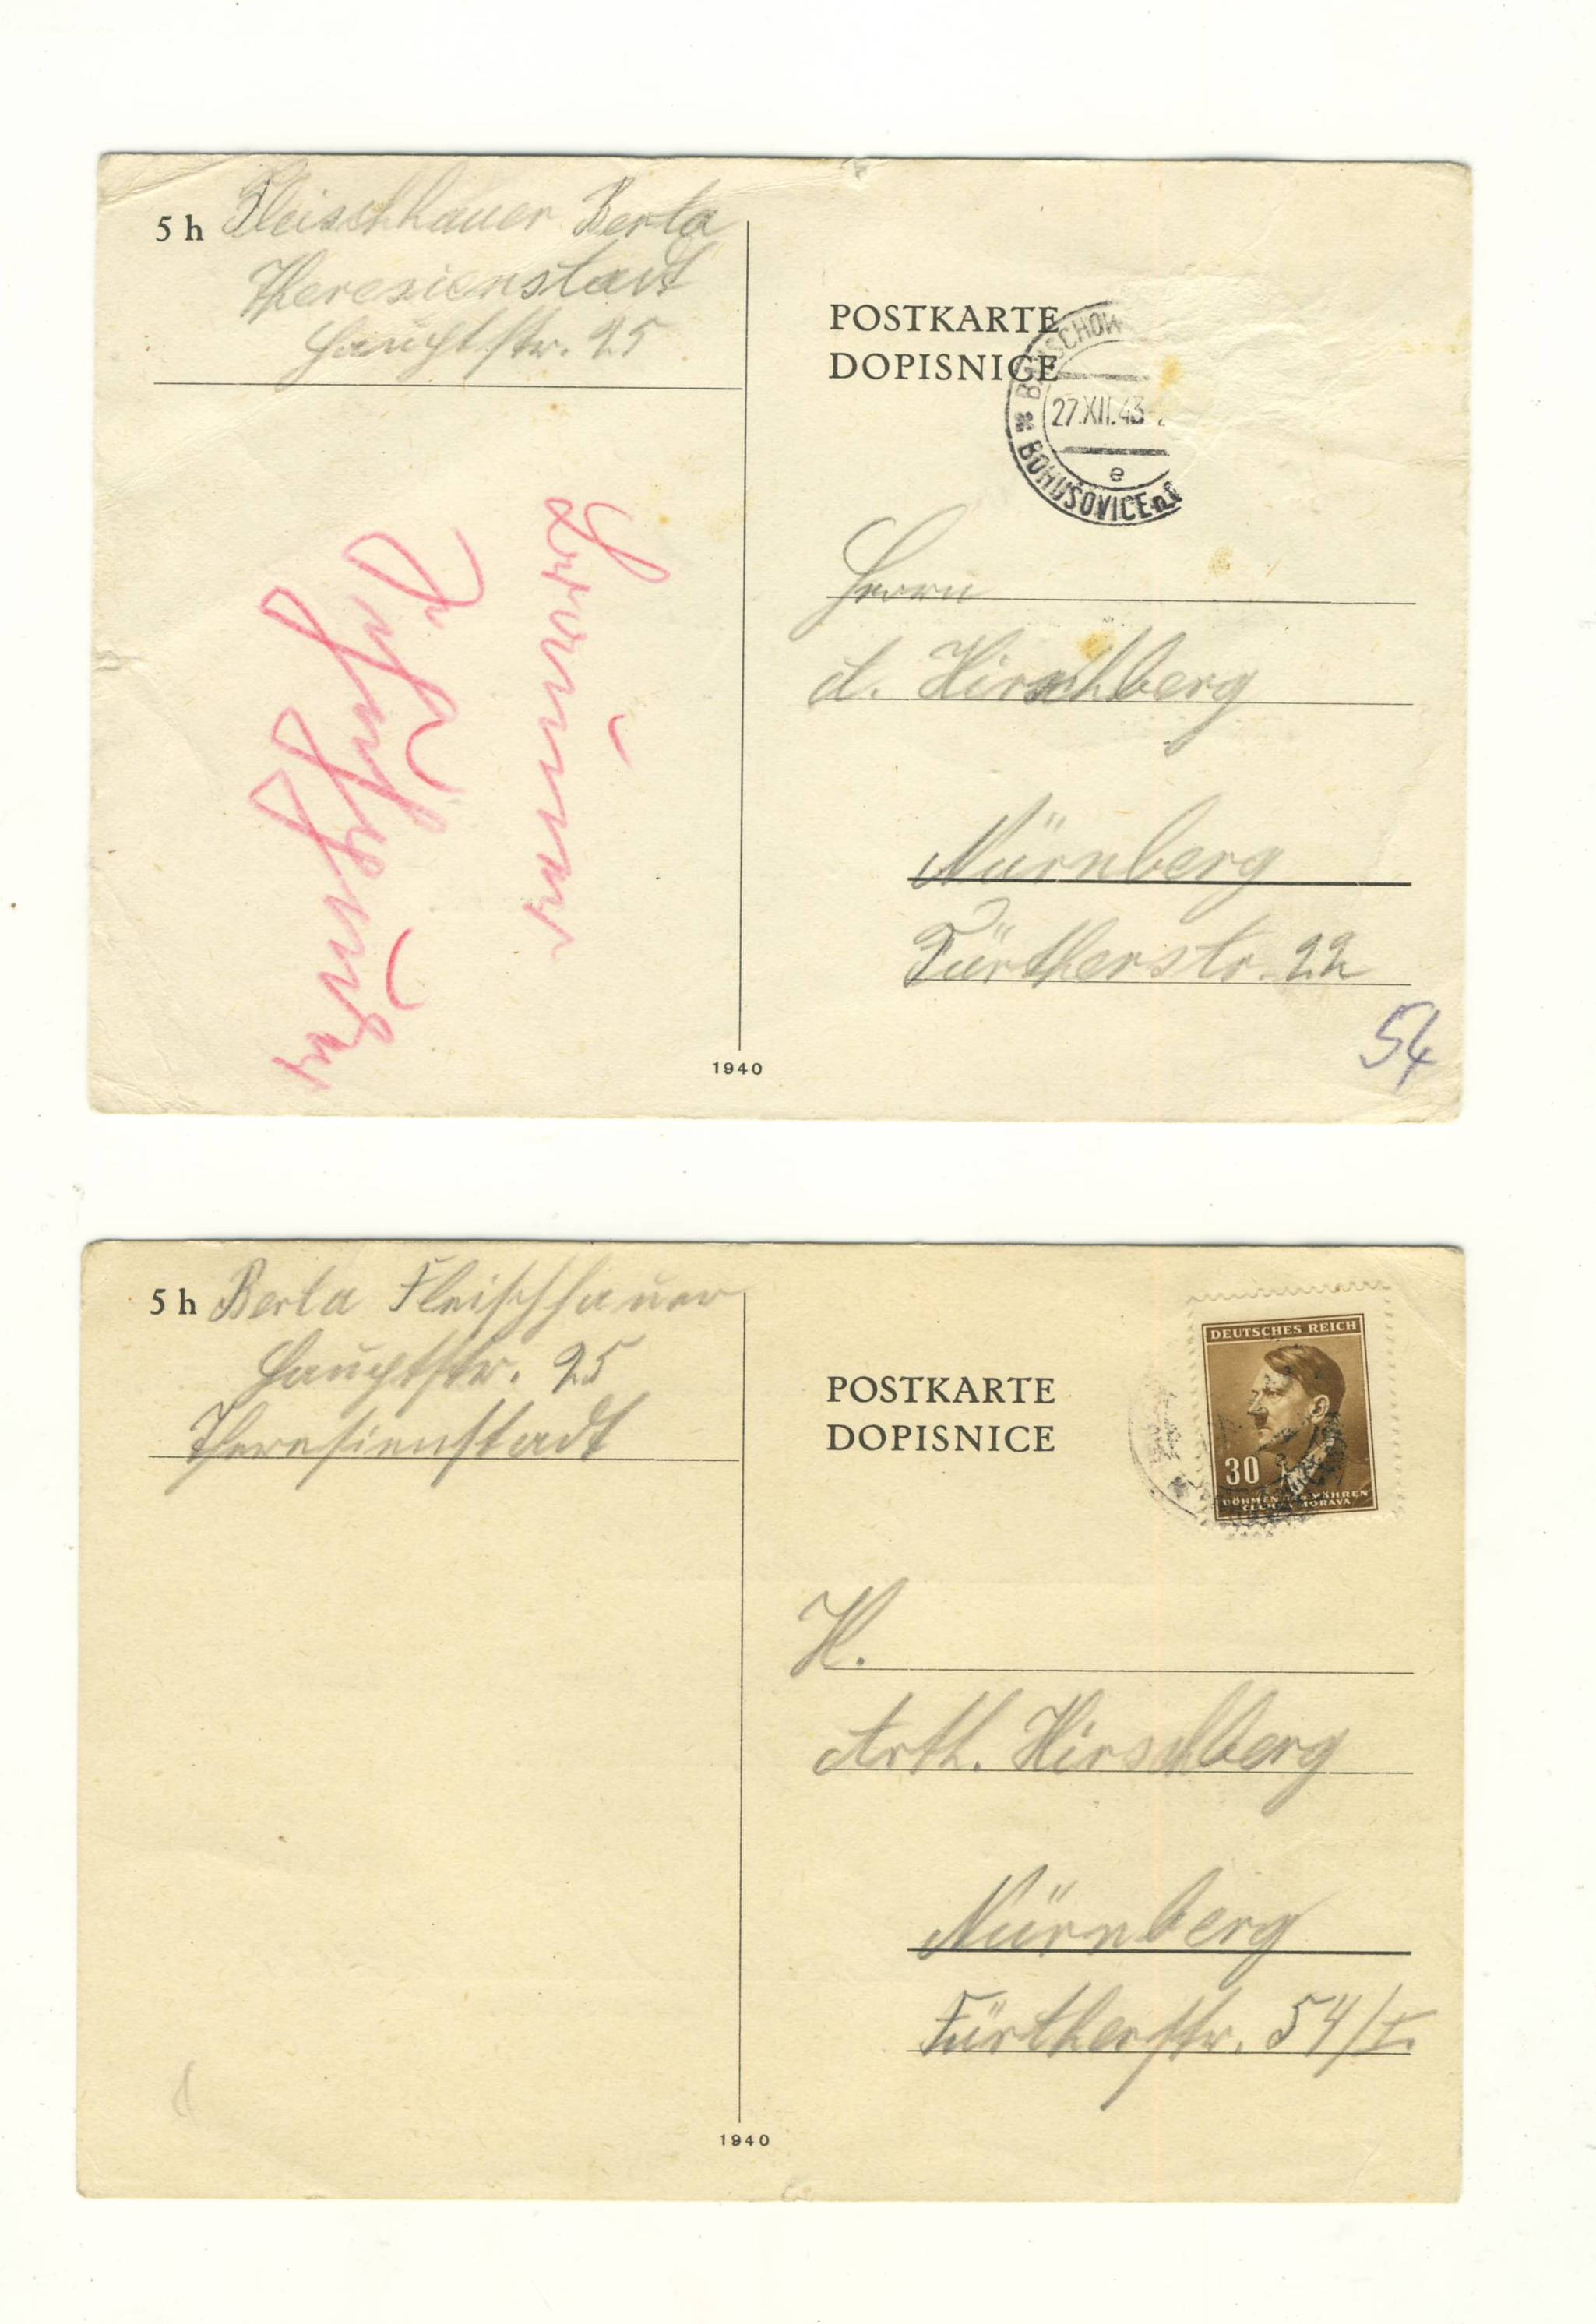 5 h Fleischhauer Berta
Theresienstadt
Hauptstr. 25
POSTKARTE
DOPISNICE
27.XII.43
e
BOHUŠOVICE
Herrn
A. Hirschberg
Nürnberg
Fürtherstr. 22
54
1940
5 h Berta Fleischhauer
Hauptstr. 25
Theresienstadt
POSTKARTE
DOPISNICE
DEUTSCHES REICH
30
BÖHMEN UND MÄHREN
ČECHY A MORAVA
H.
Arth. Hirschberg
Nürnberg
Fürtherstr. 54/I.
1940